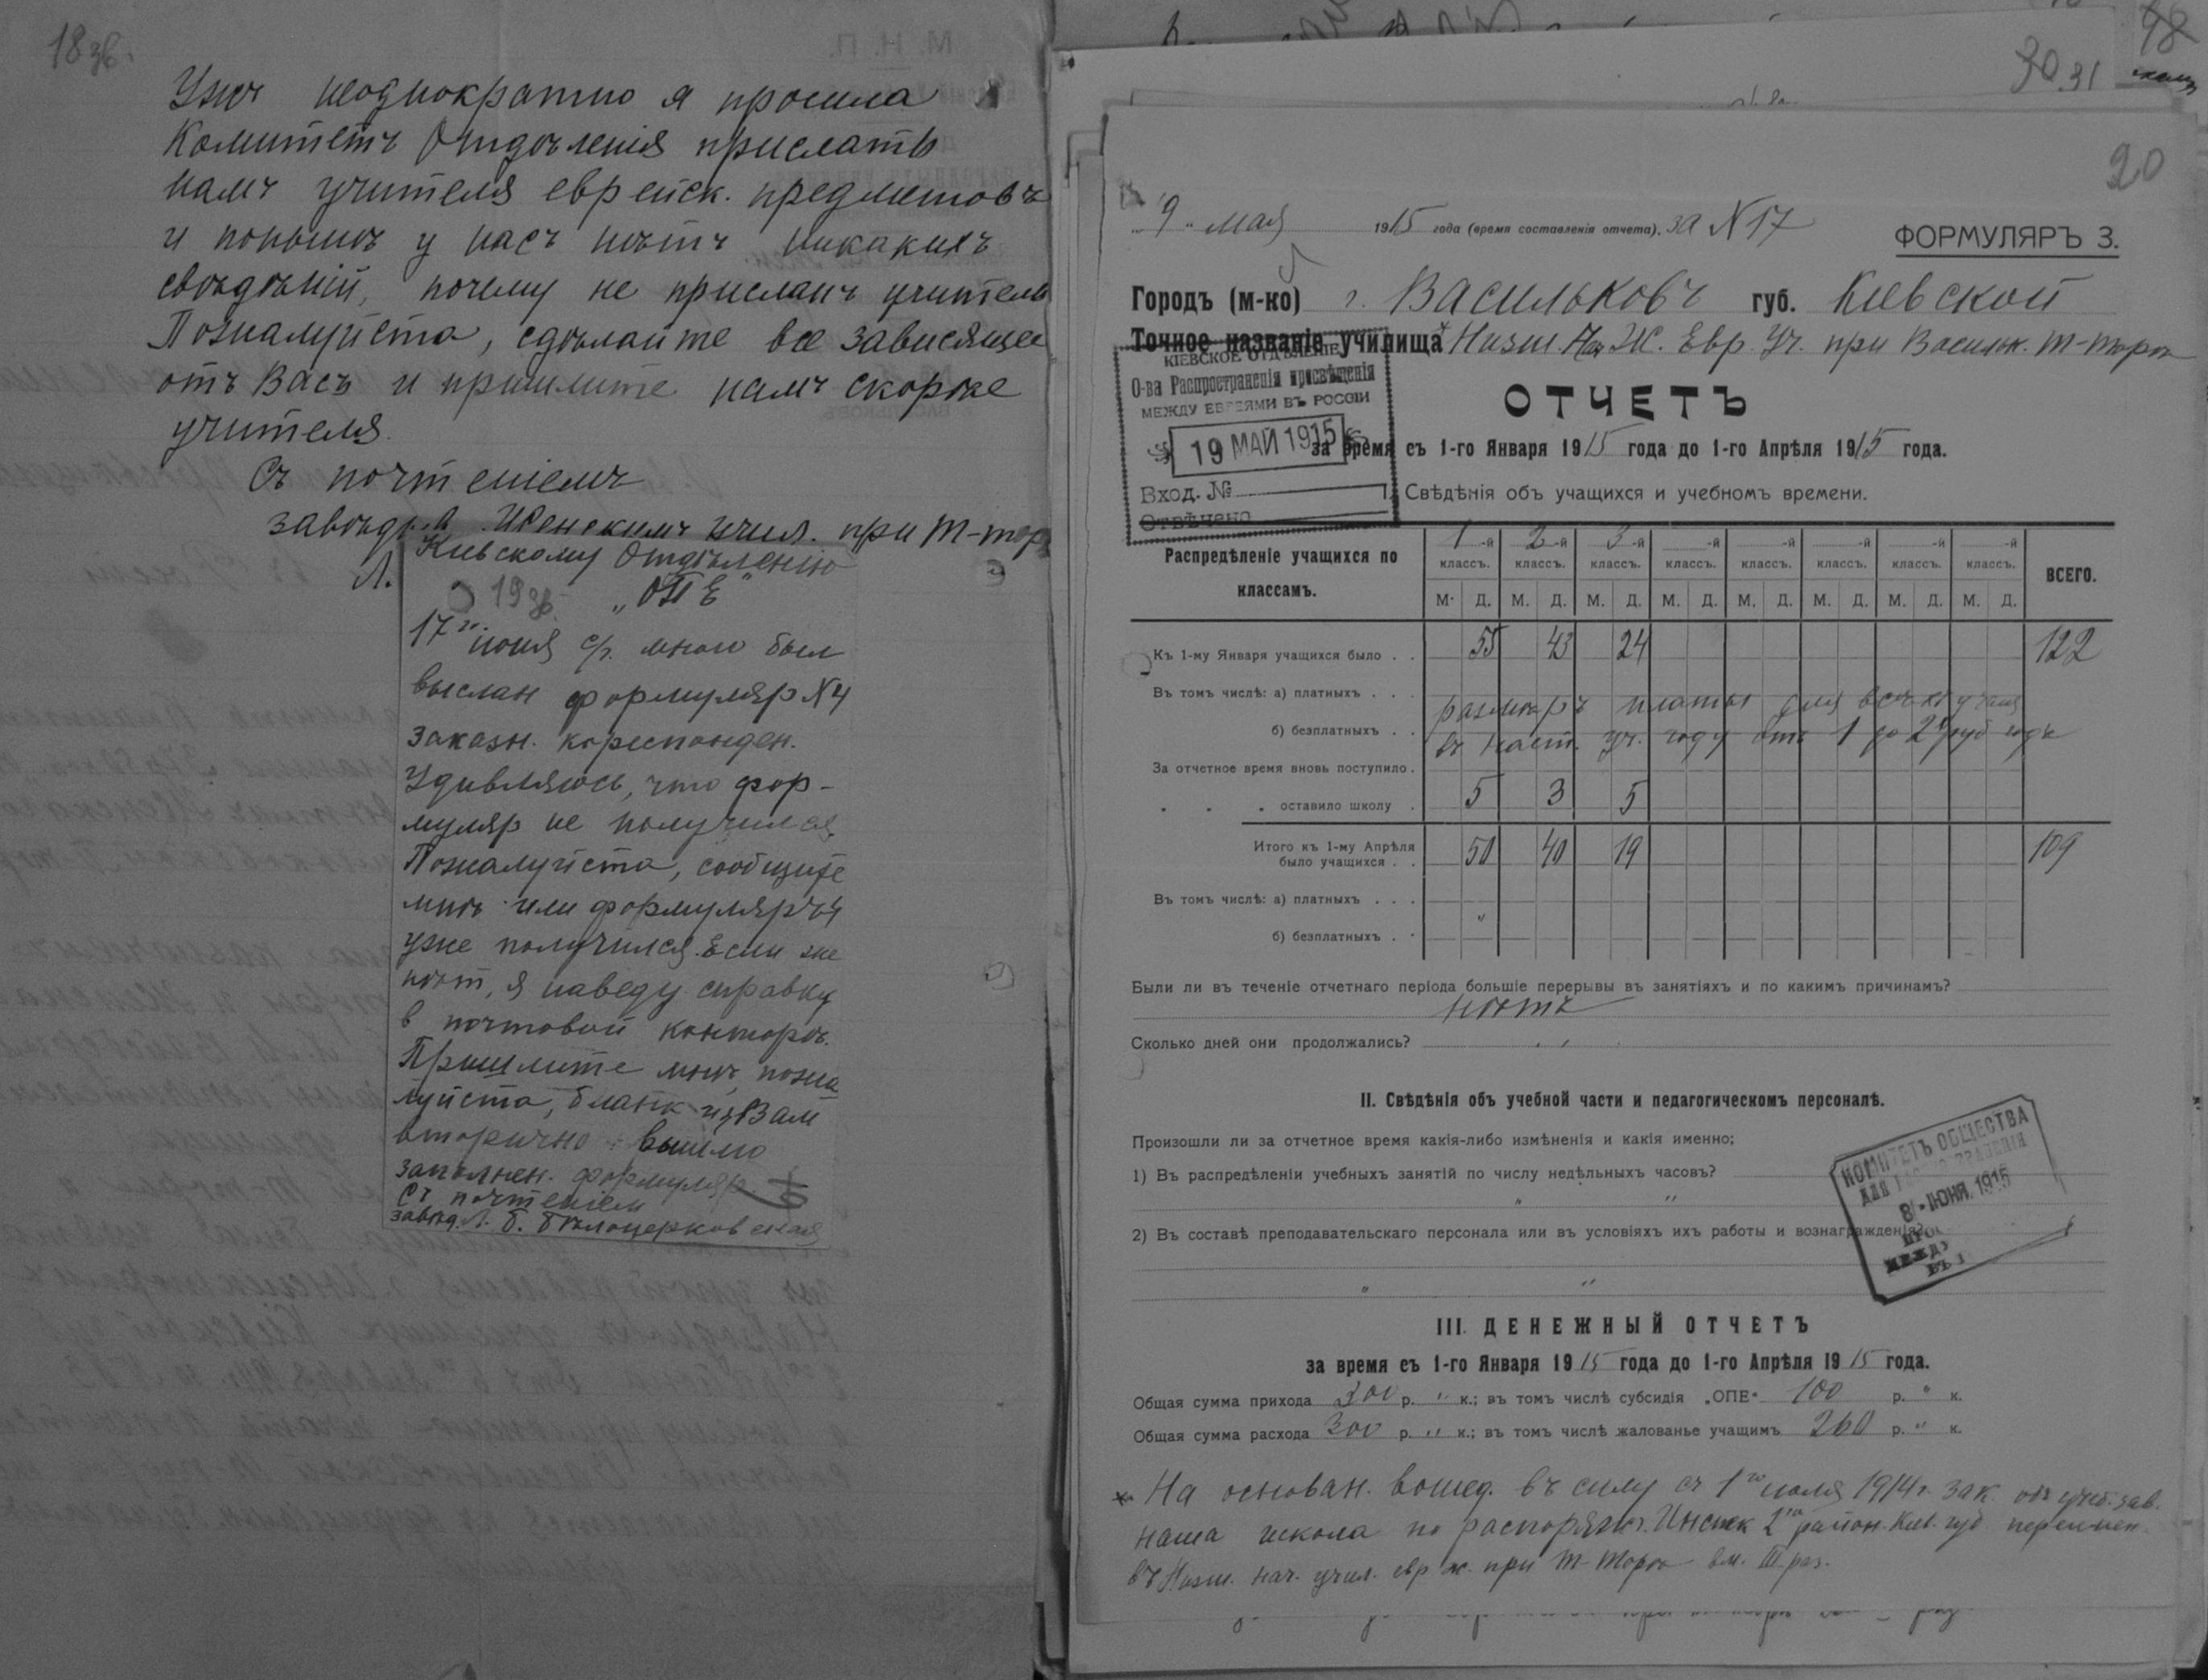 18 об.
Уже неоднократно я просила
Комитетъ Отдѣленія прислать
намъ учителя еврейск. предметовъ
и понынѣ у насъ нѣтъ никакихъ
свѣдѣній, почему не присланъ учитель
Пожалуйста, сдѣлайте все зависящее
отъ Васъ и пришлите намъ скорѣе
учителя.
Съ почтеніемъ
завѣдыв. Женскимъ учил. при Т-тор
Л.
Кіевскому Отдѣленію
19 об. „ОПЕ"
17го іюня с/г. мною был
выслан формуляр N4
заказн. кореспонден.
Удивляюсь, что фор-
муляр не получился.
Пожалуйста, сообщите
мнѣ или формуляръ 4
уже получился. Если же
нѣт, я наведу справку
в почтовой конторѣ.
Пришлите мнѣ, пожа
луйста, бланк и я Вам
вторично вышлю
заполнен. формуляр
Съ почтеніем
завѣд. Л. Б. Бѣлоцерковская
30.31
20
„9" мая 1915 года (время составленія отчета). за N 17
ФОРМУЛЯРЪ 3.
Городъ (м-ко) г. Васильковъ губ. Кіевской
Точное названіе училища* Низш. Нач. Ж. Евр. Уч. при Васильк. Т-Торѣ
КІЕВСКОЕ ОТДѢЛЕНІЕ
О-ва Распространенія просвѣщенія
МЕЖДУ ЕВРЕЯМИ ВЪ РОССІИ
19 МАЙ 1915
Вход. №
Отвѣчено
ОТЧЕТЪ
за время съ 1-го Января 1915 года до 1-го Апрѣля 1915 года.
I. Свѣдѣнія объ учащихся и учебномъ времени.
Распредѣленіе учащихся по классамъ. 1-й классъ. 2-й классъ. 3-й классъ. -й классъ. -й классъ. -й классъ. -й классъ. -й классъ. ВСЕГО.
М. Д. М. Д. М. Д. М. Д. М. Д. М. Д. М. Д. М. Д.
Къ 1-му Января учащихся было . . 55 43 24 122
Въ томъ числѣ: а) платныхъ . . . размѣръ платы для всѣхъ учащ
б) безплатныхъ . . въ наст. уч. году отъ 1 до 2 руб годъ
За отчетное время вновь поступило .
" " " оставило школу . 5 3 5
Итого къ 1-му Апрѣля
было учащихся . . 50 40 19 109
Въ томъ числѣ: а) платныхъ . . . "
б) безплатныхъ . .
Были ли въ теченіе отчетнаго періода большіе перерывы въ занятіяхъ и по какимъ причинамъ?
нѣтъ
Сколько дней они продолжались? "
II. Свѣдѣнія объ учебной части и педагогическомъ персоналѣ.
Произошли ли за отчетное время какія-либо измѣненія и какія именно;
1) Въ распредѣленіи учебныхъ занятій по числу недѣльныхъ часовъ?
" "
2) Въ составѣ преподавательскаго персонала или въ условіяхъ ихъ работы и вознагражденія?
" "
КОМИТЕТЪ ОБЩЕСТВА
8 - ІЮНЯ. 1915
III. ДЕНЕЖНЫЙ ОТЧЕТЪ
за время съ 1-го Января 1915 года до 1-го Апрѣля 1915 года.
Общая сумма прихода 300 р. " к.; въ томъ числѣ субсидія „ОПЕ" 100 р. " к.
Общая сумма расхода 300 р. " к.; въ томъ числѣ жалованье учащимъ 260 р. " к.
* На основан. вошед. въ силу съ 1го іюля 1914 г. зак. объ учеб. зав.
наша школа по распоряж. Инспек 2го район. Кіев. губ переимен.
въ Низш. нач. учил. евр ж. при Т-Торѣ вм. III раз.